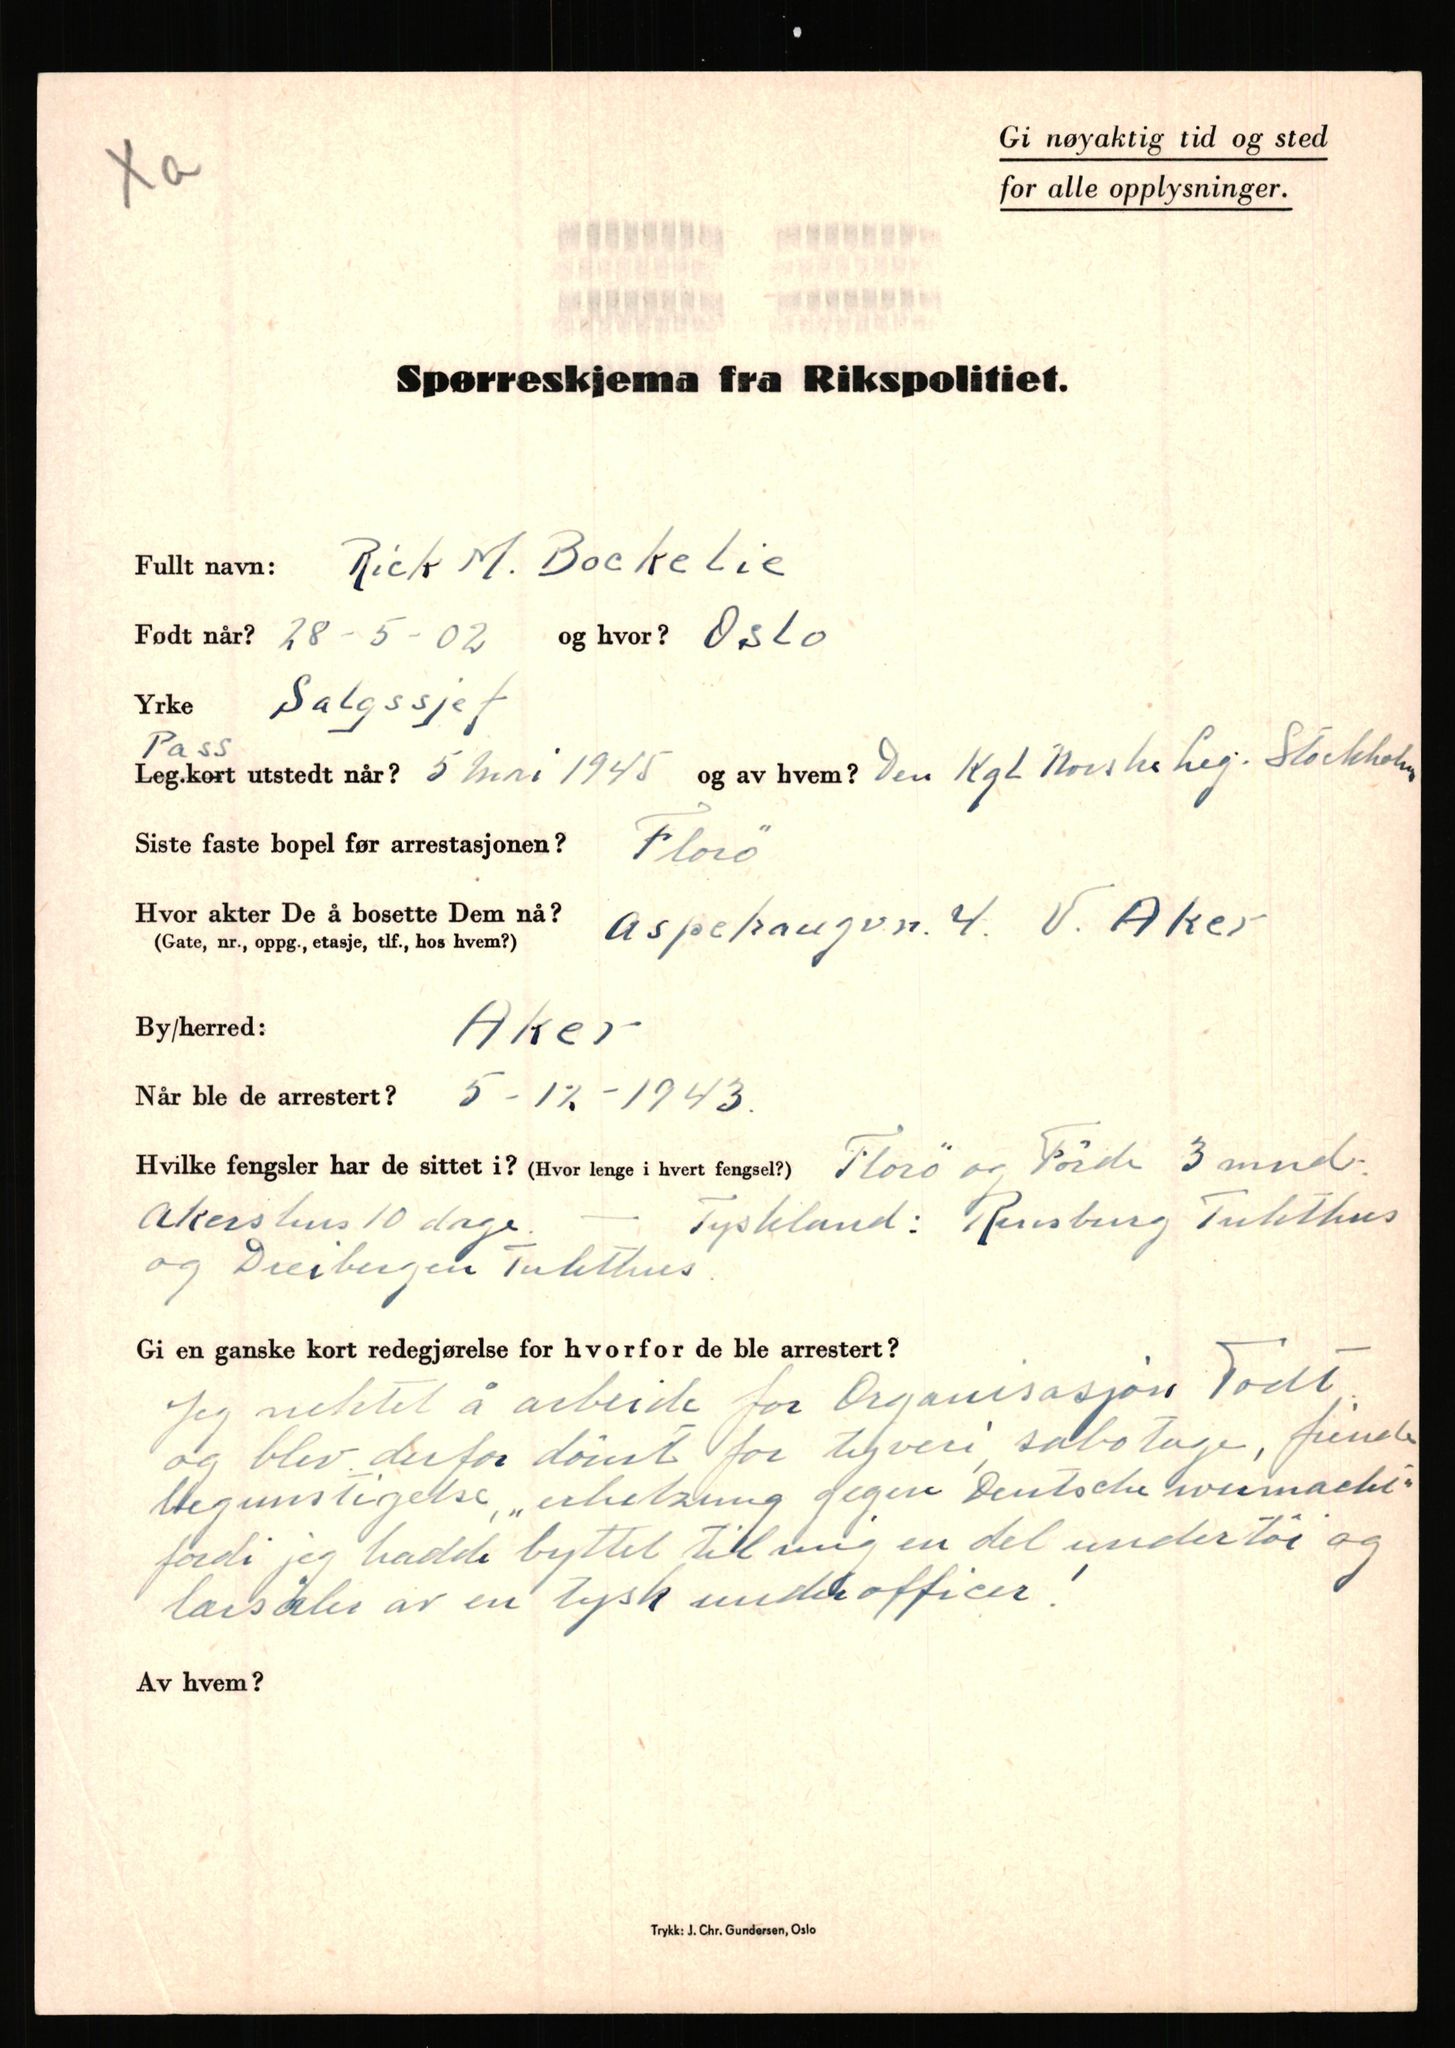 Xa
Gi nøyaktig tid og sted
for alle opplysninger.
Spørreskjema fra Rikspolitiet.
Fullt navn: Rick M. Bockelie
Født når? 28-5-02 og hvor? Oslo
Yrke Salgssjef
Pass
Leg.kort utstedt når? 5 Mai 1945 og av hvem? Den Kgl Norske Leg. Stockholm
Siste faste bopel før arrestasjonen? Florö
Hvor akter De å bosette Dem nå? Aspehaugvn. 4. V. Aker
(Gate, nr., oppg., etasje, tlf., hos hvem?)
By/herred: Aker
Når ble de arrestert? 5-12-1943.
Hvilke fengsler har de sittet i? (Hvor lenge i hvert fengsel?) Florö og Förde 3 mnd.
Akershus 10 dage. — Tyskland: Rensburg Tukthus
og Dreibergen Tukthus.
Gi en ganske kort redegjørelse for hvorfor de ble arrestert?
Jeg nektet å arbeide for Organisasjon Todt
og blev derfor dömt for tyveri, sabotage, fiende
begunstigelse, „erhetzung gegen Deutsche wermacht“
fordi jeg hadde byttet til mig en del undertöi og
lærsåler av en tysk underofficer!
Av hvem?
Trykk: J. Chr. Gundersen, Oslo